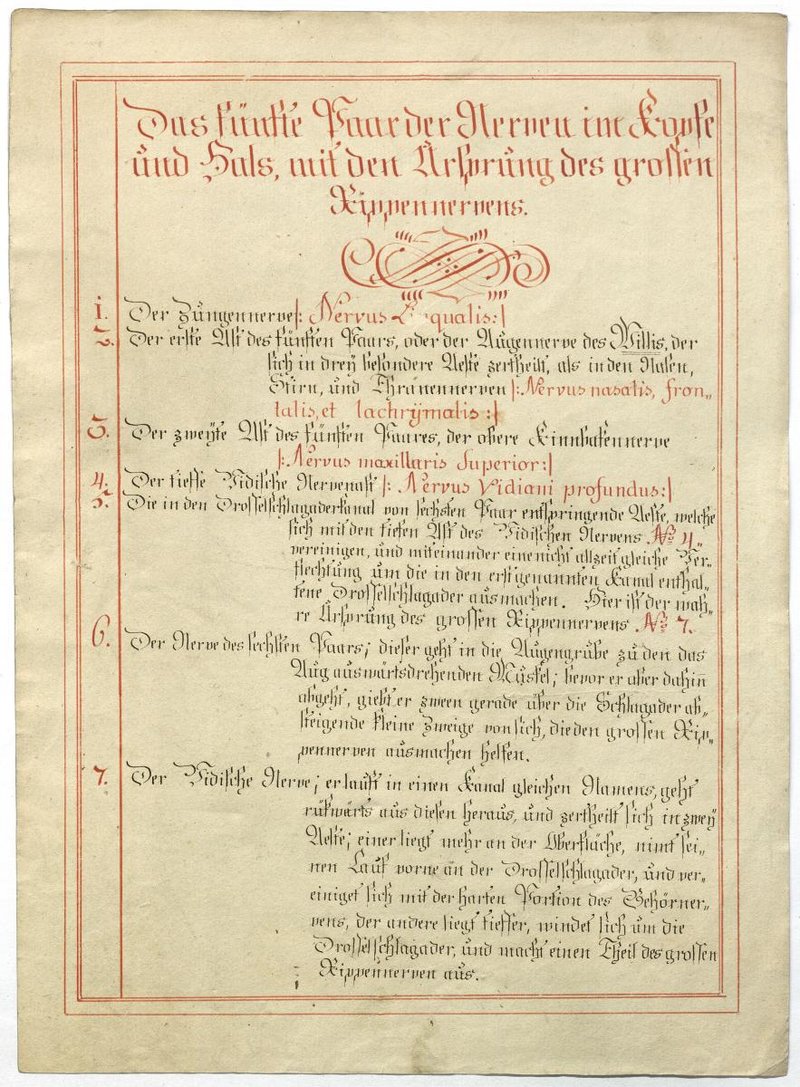 Das fünfte Paar der Nerven im Kopfe
und Hals, mit den Ursprung des grossen
Rippennervens.
1. Der Zungennerve |: Nervus qualis :|
2. Der erste Ast des fünften Paars, oder der Augennerve des Willis, der
sich in dreÿ besondere Aeste zertheilt, als in den Nasen,
Stirn, und Thränennerven |: Nervus nasalis, fron„
talis, et lachrÿmalis :|
3. Der zweÿte Ast des fünften Paares, der obere Kinnbakennerve
|: Nervus maxillaris Superior :|
4. Der tieffe Vidische Nervenast |: Nervus Vidiani profundus :|
5. Die in den Drosselschlagaderkanal von sechsten Paar entspringende Aeste, welche
sich mit den tiefen Ast des Vidischen Nervens No 4„
vereinigen, und miteinander eine nicht allzeit gleiche Ver„
flechtung um die in den erstgenannten Kanal enthal„
tene Drosselschlagader ausmachen. Hier ist der wah„
re Ursprung des grossen Rippennervens No 7.
6. Der Nerve des sechsten Paars; dieser geht in die Augengrube zu den das
Aug auswärtsdrehenden Muskel; bevor er aber dahin
abgeht, giebt er zween gerade über die Schlagader ab„
steigende kleine Zweige von sich, die den grossen Rip„
pennerven ausmachen helfen.
7. Der Vidische Nerve; er lauft in einen Kanal gleichen Namens, geht
rükwärts aus diesen heraus, und zertheilt sich in zweÿ
Aeste; einer liegt mehr an der Oberfläche, nimt sei„
nen Lauf vorne an der Drosselschlagader, und ver„
einiget sich mit der harten Portion des Gehörner„
vens, der andere liegt tieffer, windet sich um die
Drosselschlagader, und macht einen Theil des grossen
Rippennerven aus.